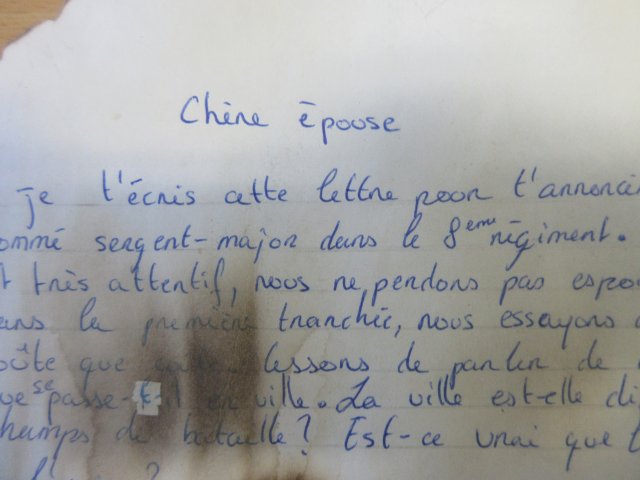 Chère épouse
je t'écris cette lettre pour t'annoncer
ommé sergent-major dans le 8eme régiment.
t très attentif, nous ne perdons pas espoi
ans la première tranchée, nous essayons
oûte que coûte. lessons de parler de
ue se passe-t-il en ville. La ville est-elle
hamps de bataille? Est-ce vrai que